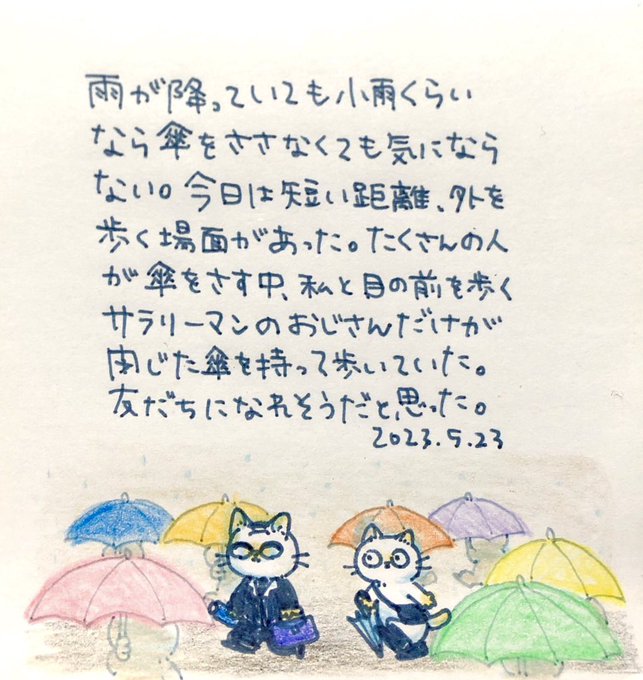 雨が降っていても小雨くらい
なら傘をささなくても気になら
ない。今日は短い距離、外を
歩く場面があった。たくさんの人
が傘をさす中、私と目の前を歩く
サラリーマンのおじさんだけが
閉じた傘を持って歩いていた。
友だちになれそうだと思った。
2023.5.23